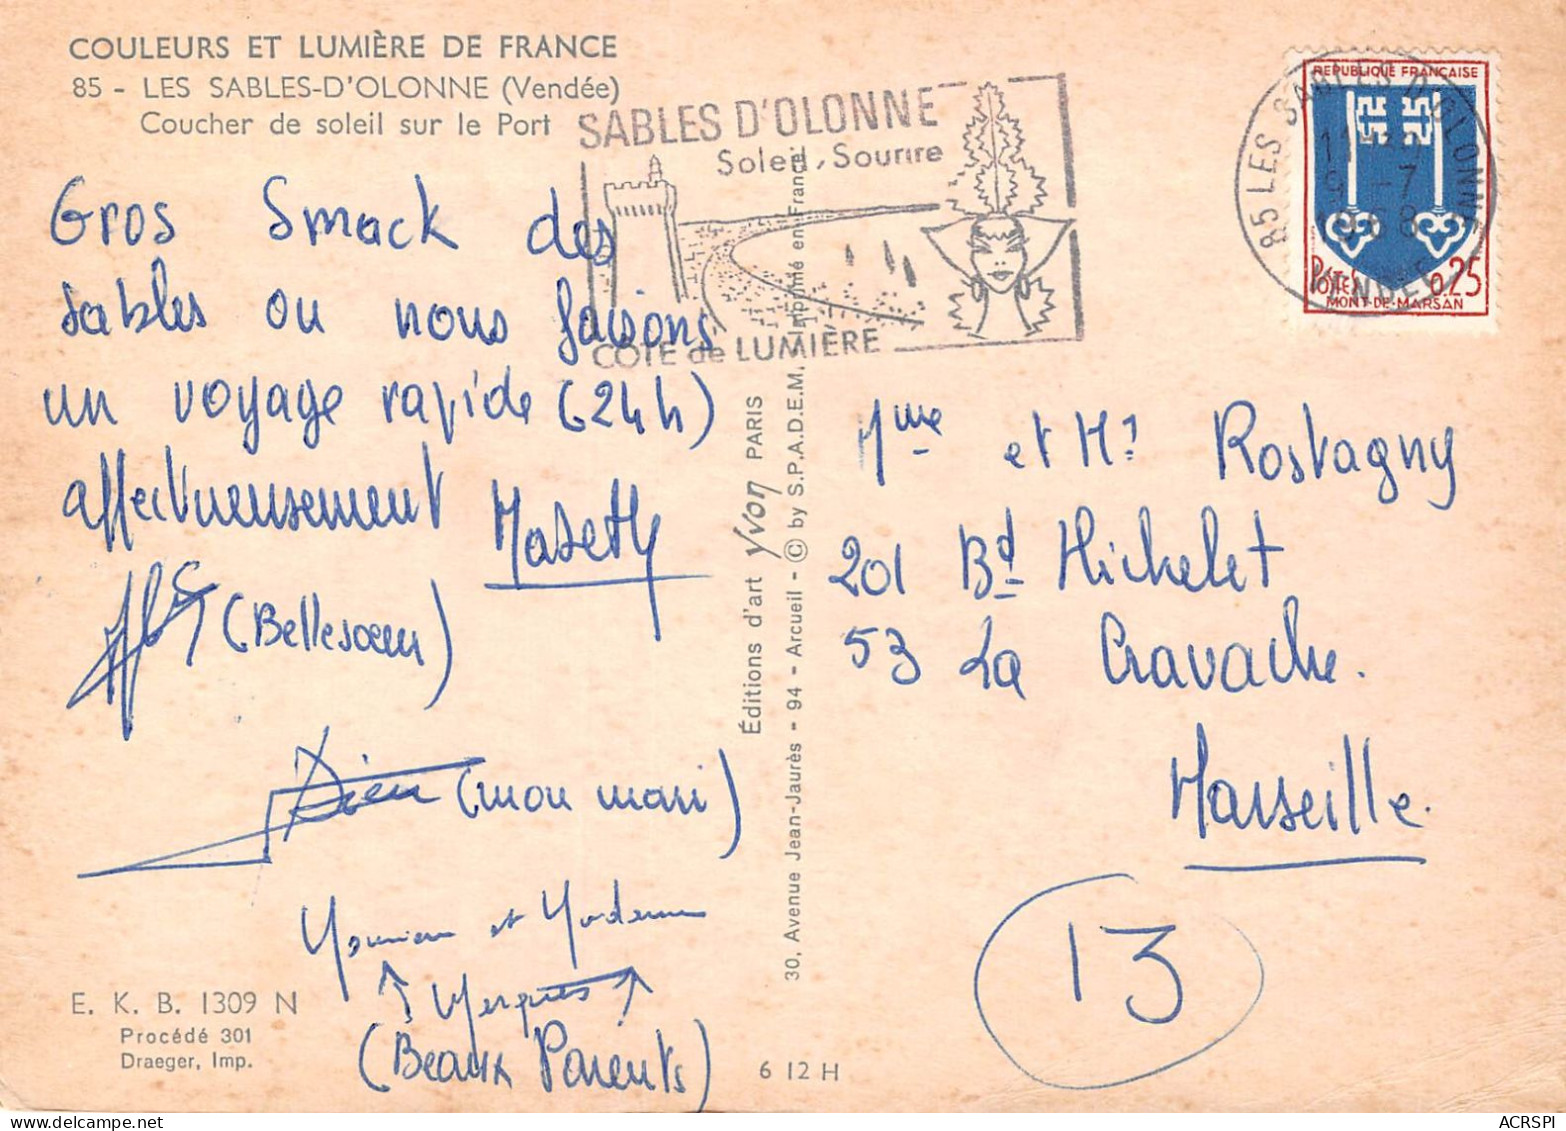 COULEURS ET LUMIÈRE DE FRANCE
85 - LES SABLES-D'OLONNE (Vendée)
Coucher de soleil sur le Port
SABLES D'OLONNE
Soleil, Sourire
COTE de LUMIÈRE
85 LES SABLES D'OLONNE
9 - 7
1968
REPUBLIQUE FRANÇAISE
POSTES 0,25
MONT-DE-MARSAN
Gros Smack des
sables ou nous faisons
un voyage rapide (24h)
affectueusement
(Bellesoeur)
(mon mari)
Monsieur et Madame
(Beaux Parents)
E. K. B. 1309 N
Procédé 301
Draeger, Imp.
6 12 H
Éditions d'art Yvon PARIS
30, Avenue Jean-Jaurès - 94 - Arcueil - © by S.P.A.D.E.M. Imprimé en France
Mme et Mr Rostagny
201 Bd Michelet
53 La Cravache.
Marseille.
13
ACRSPI